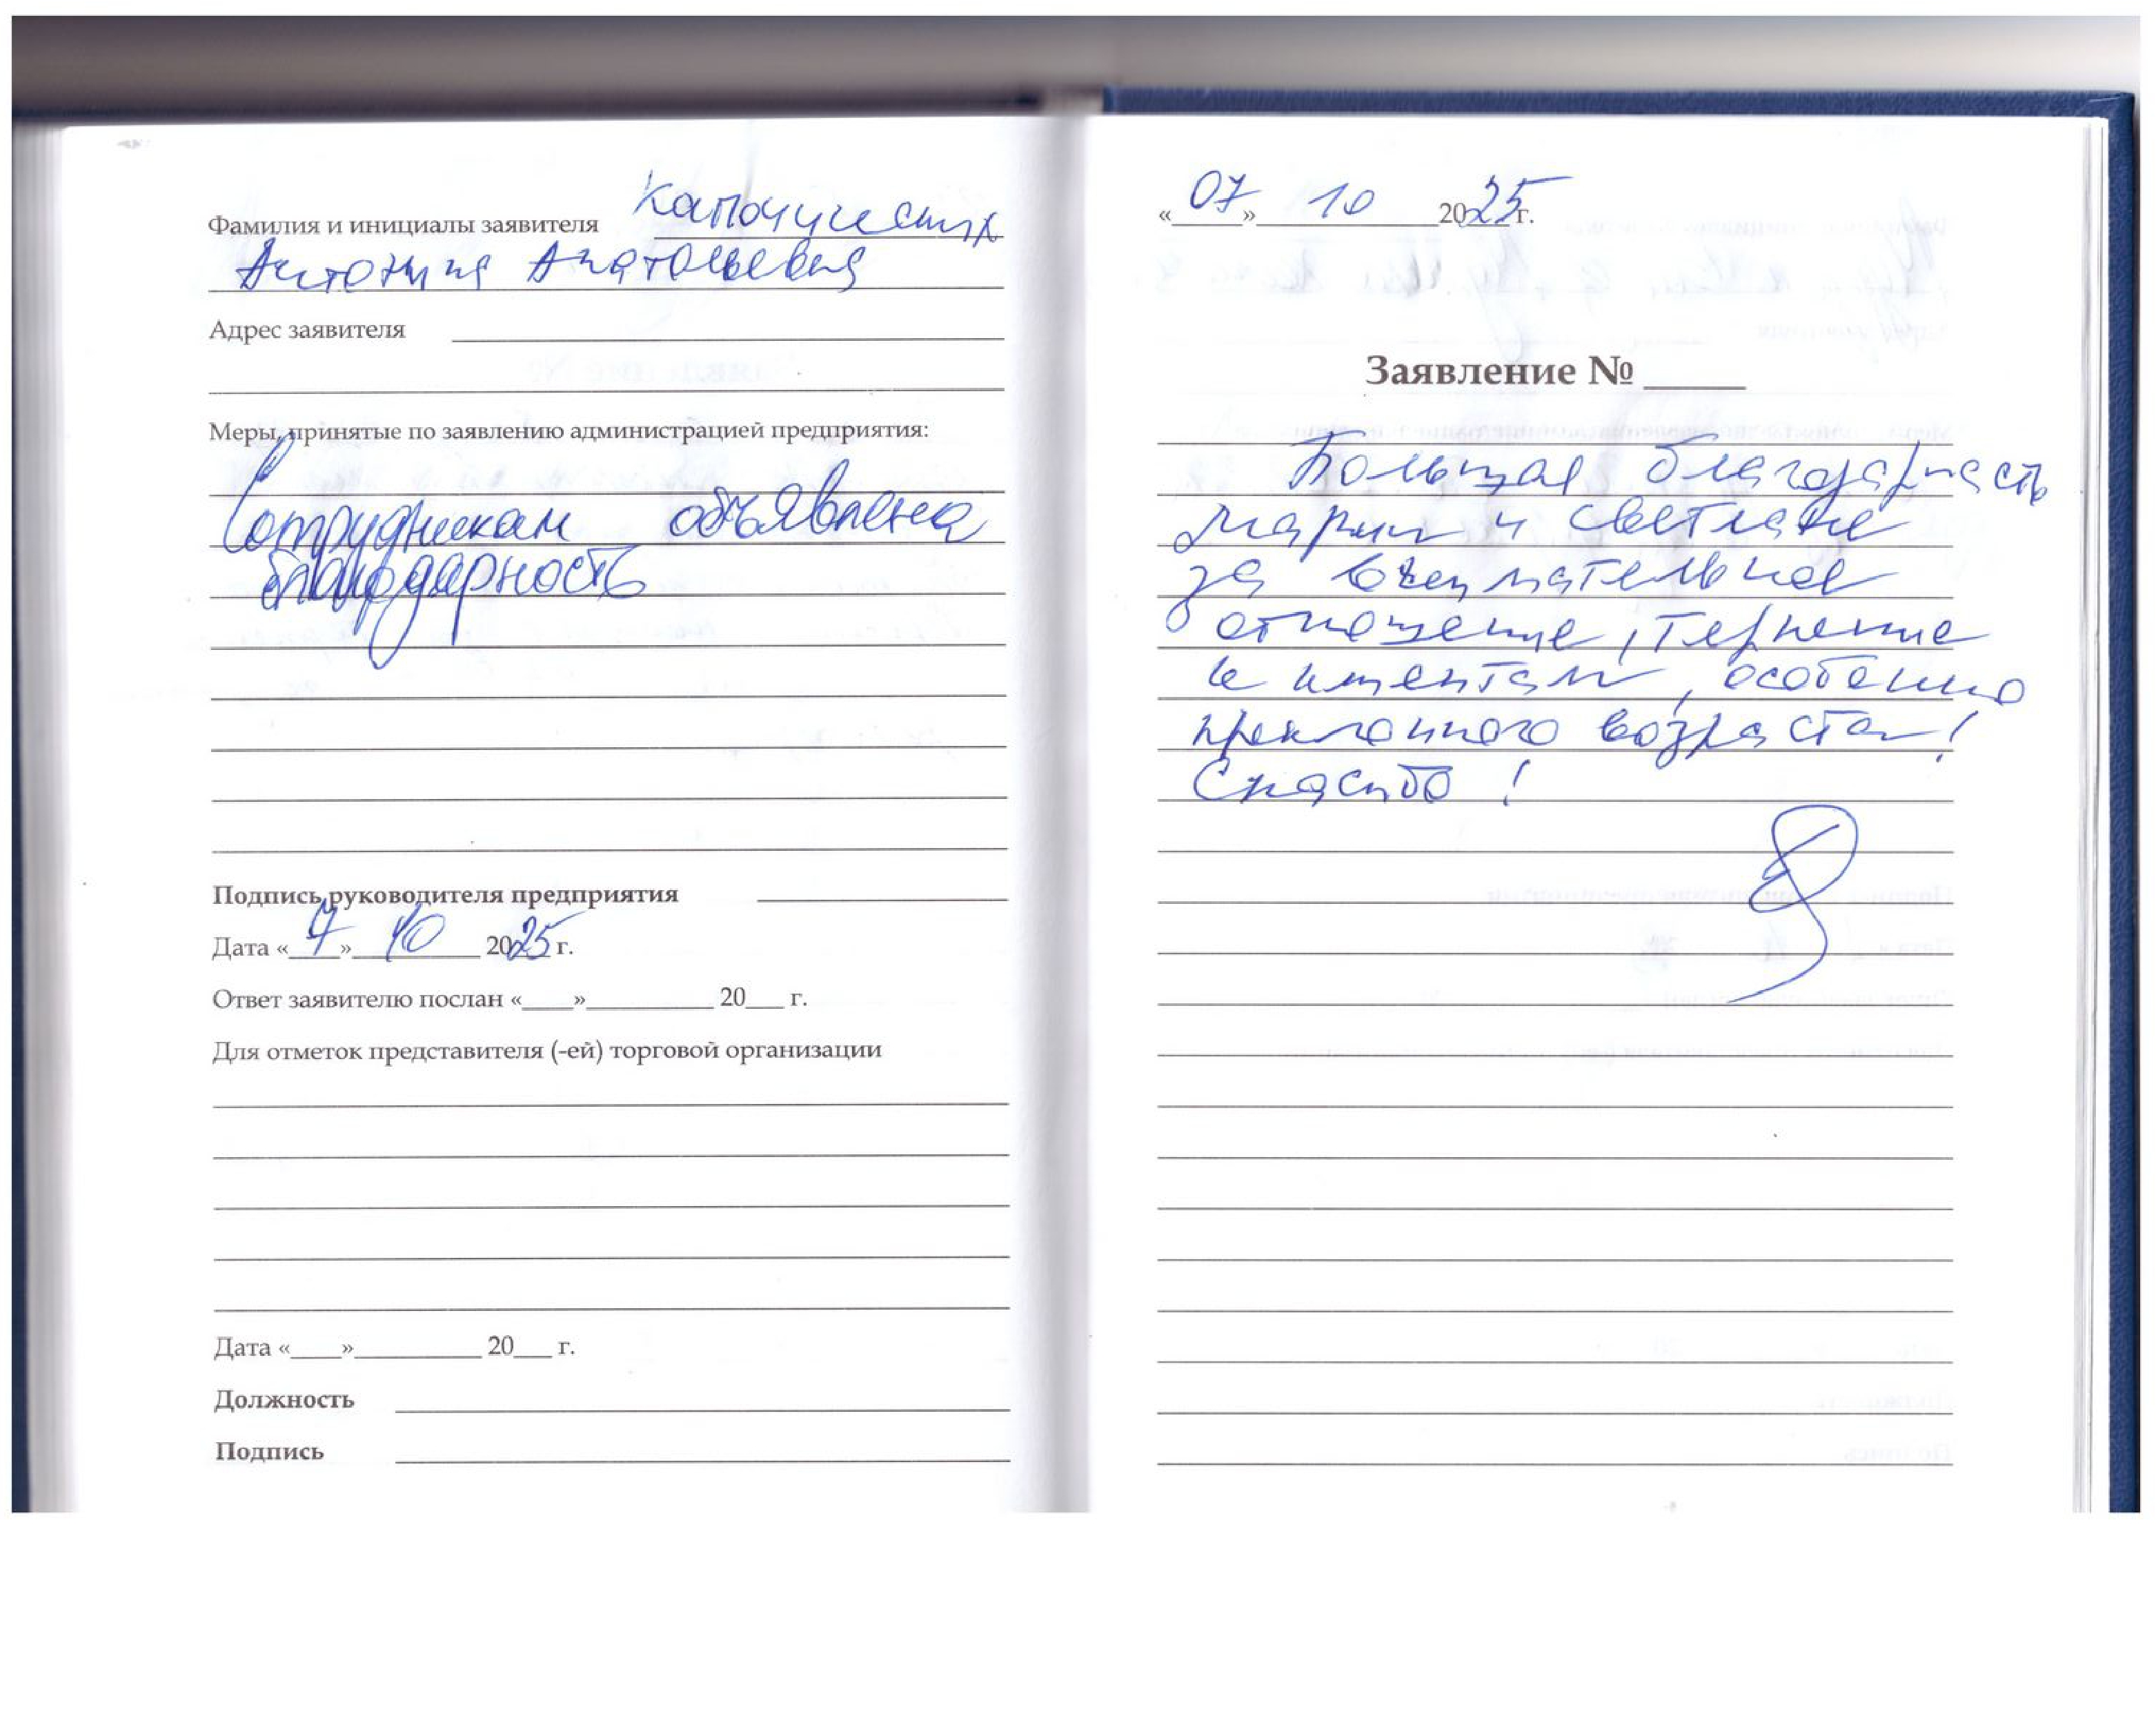 Фамилия и инициалы заявителя
Антонина Анатольевна
Адрес заявителя
Меры, принятые по заявлению администрацией предприятия:
Сотрудникам объявлена
благодарность
Подпись руководителя предприятия
Дата «7» 10 2025 г.
Ответ заявителю послан «____»__________ 20___ г.
Для отметок представителя (-ей) торговой организации
Дата «____»__________ 20___ г.
Должность
Подпись
«07» 10 2025 г.
Заявление № _____
Большая благодарность
Марии и Светлане
за внимательное
отношение, терпение
к клиентам, особенно
преклонного возраста!
Спасибо!